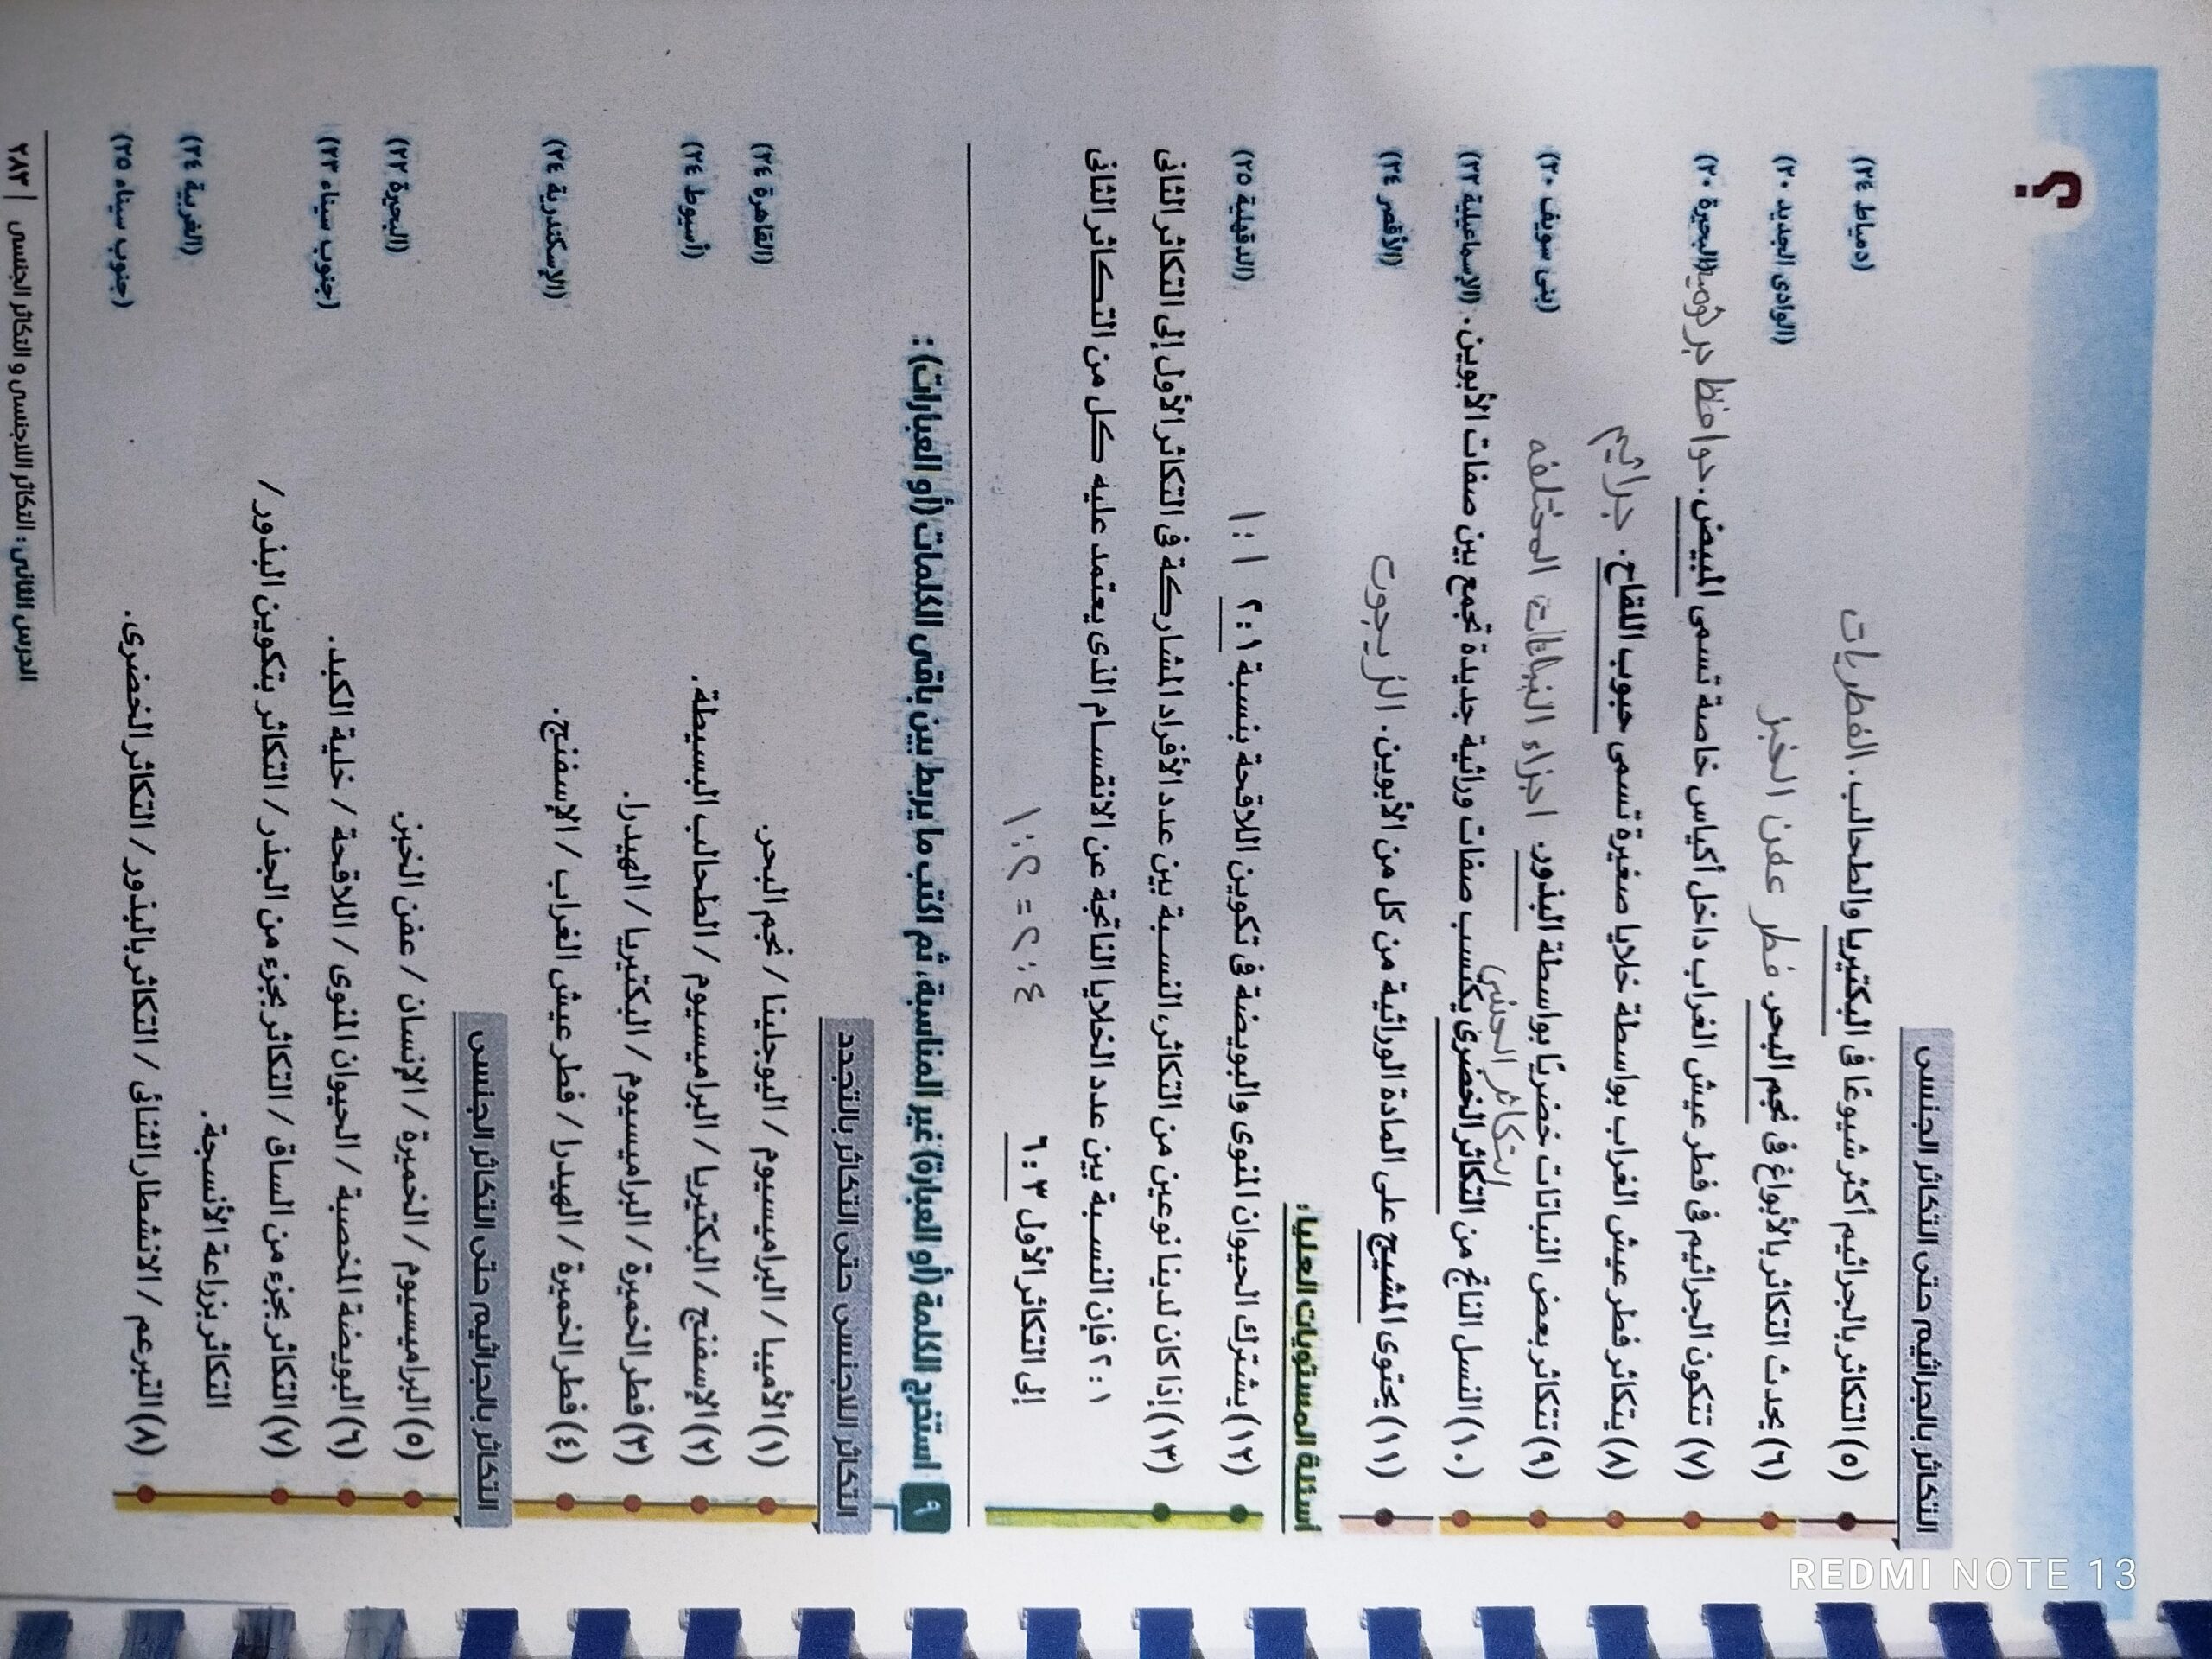 ؟
التكاثر بالجراثيم حتى التكاثر الجنسى
(٥) التكاثر بالجراثيم أكثر شيوعًا فى البكتيريا والطحالب. الفطريات (دمياط ٢٤)
(٦) يحدث التكاثر بالأبواغ فى نجم البحر. فطر عفن الخبز (الوادى الجديد ٢٠)
(٧) تتكون الجراثيم فى فطر عيش الغراب داخل أكياس خاصة تسمى المبيض. حوافظ جرثومية (البحيرة ٢٠)
(٨) يتكاثر فطر عيش الغراب بواسطة خلايا صغيرة تسمى حبوب اللقاح. جراثيم
(٩) تتكاثر بعض النباتات خضريًا بواسطة البذور. اجزاء النباتات المختلفه (بنى سويف ٢٠)
التكاثر الجنسي
(١٠) النسل الناتج من التكاثر الخضرى يكتسب صفات وراثية جديدة تجمع بين صفات الأبوين. (الإسماعيلية ٢٢)
(١١) يحتوى المشيج على المادة الوراثية من كل من الأبوين. الزيجوت (الأقصر ٢٤)
أسئلة المستويات العليا:
(١٢) يشترك الحيوان المنوى والبويضة فى تكوين اللاقحة بنسبة ١ : ٢ ١:١ (الدقهلية ٢٥)
(١٣) إذا كان لدينا نوعين من التكاثر، النسبة بين عدد الأفراد المشاركة فى التكاثر الأول إلى التكاثر الثانى
١ : ٢ فإن النسبة بين عدد الخلايا الناتجة عن الانقسام الذى يعتمد عليه كل من التكاثر الثانى
إلى التكاثر الأول ٣ : ٦ ٤:٢ = ٢:١
٩ استخرج الكلمة (أو العبارة) غير المناسبة، ثم اكتب ما يربط بين باقى الكلمات (أو العبارات) :
التكاثر اللاجنسى حتى التكاثر بالتجدد
(١) الأميبا / البراميسيوم / اليوجلينا / نجم البحر. (القاهرة ٢٤)
(٢) الإسفنج / البكتيريا / البراميسيوم / الطحالب البسيطة. (أسيوط ٢٤)
(٣) فطر الخميرة / البراميسيوم / البكتيريا / الهيدرا.
(٤) فطر الخميرة / الهيدرا / فطر عيش الغراب / الإسفنج. (الإسكندرية ٢٤)
التكاثر بالجراثيم حتى التكاثر الجنسى
(٥) البراميسيوم / الخميرة / الإنسان / عفن الخبز. (البحيرة ٢٣)
(٦) البويضة المخصبة / الحيوان المنوى / اللاقحة / خلية الكبد. (جنوب سيناء ٢٣)
(٧) التكاثر بجزء من الساق / التكاثر بجزء من الجذر / التكاثر بتكوين البذور /
التكاثر بزراعة الأنسجة. (الغربية ٢٤)
(٨) التبرعم / الانشطار الثنائى / التكاثر بالبذور / التكاثر الخضرى. (جنوب سيناء ٢٥)
الدرس الثانى : التكاثر اللاجنسى و التكاثر الجنسى | ٢٨٣
REDMI NOTE 13